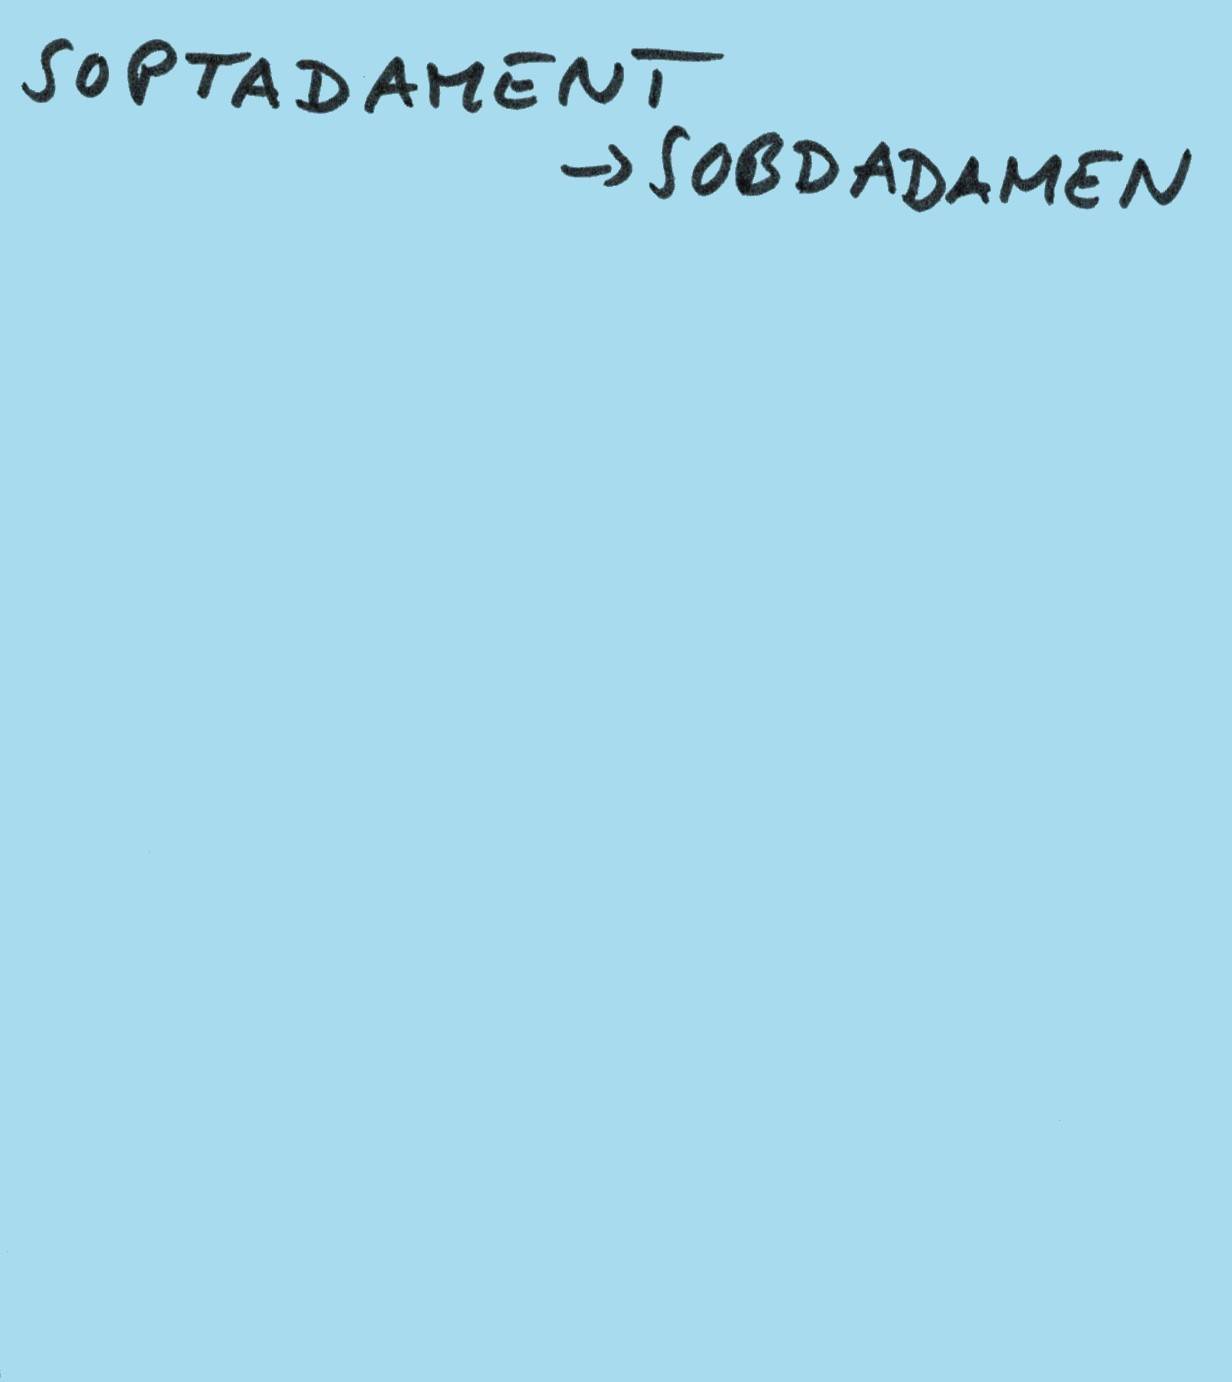 SOPTADAMENT
→ SOBDADAMEN